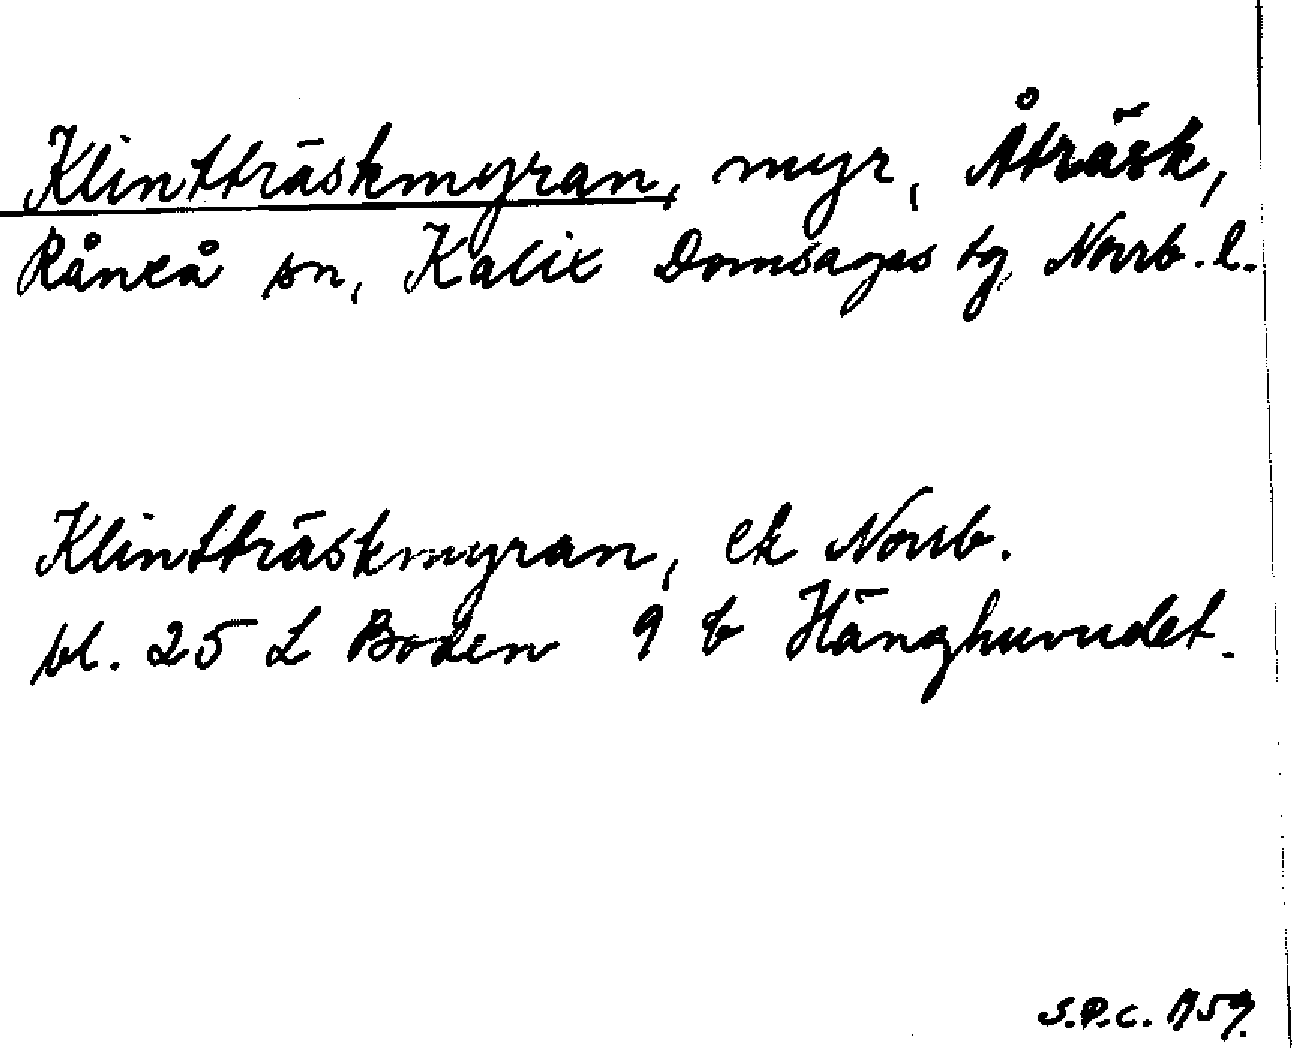 Klintträskmyran, myr, Åträsk,
Råneå sn, Kalix Domsagas tg, Norrb. l.
Klintträskmyran, ek Norrb.
bl. 25 L Boden 9 b Hänghuvudet.
S.P.C. 1959.